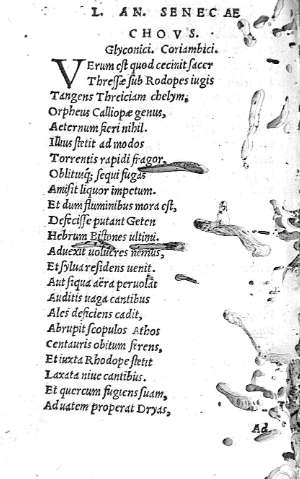 L. AN. SENECAE
CHOVS.
Glyconici. Coriambici.
VErum est quod cecinit sacer
Thressæ sub Rodopes iugis
Tangens Threiciam chelym,
Orpheus Calliopæ genus,
Aeternum fieri nihil.
Illius stetit ad modos
Torrentis rapidi fragor,
Oblitusq; sequi fugas
Amisit liquor impetum.
Et dum fluminibus mora est,
Defecisse putant Geten
Hebrum Bistones ultimi.
Aduexit uolucres nemus,
Et sylua residens uenit.
Aut siqua aëra peruolat
Auditis uaga cantibus
Ales deficiens cadit,
Abrupit scopulos Athos
Centauris obitum ferens,
Et iuxta Rhodope stetit
Laxata niue cantibus.
Et quercum fugiens suam,
Ad uatem properat Dryas,
Ad